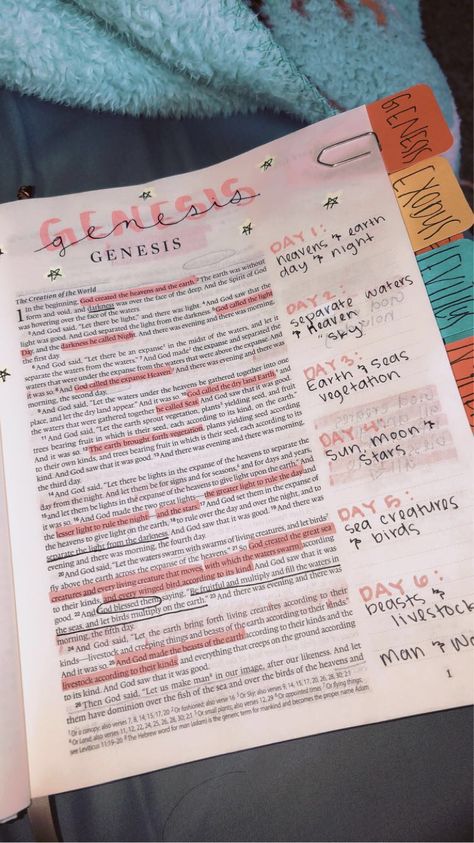 GENESIS
genesis
GENESIS
The Creation of the World
1 In the beginning, God created the heavens and the earth. 2 The earth was without
form and void, and darkness was over the face of the deep. And the Spirit of God
was hovering over the face of the waters.
3 And God said, "Let there be light," and there was light. 4 And God saw that the
light was good. And God separated the light from the darkness. 5 God called the light
Day, and the darkness he called Night. And there was evening and there was morning,
the first day.
6 And God said, "Let there be an expanse in the midst of the waters, and let it
separate the waters from the waters." 7 And God made the expanse and separated the
waters that were under the expanse from the waters that were above the expanse. And
it was so. 8 And God called the expanse Heaven. And there was evening and there was
morning, the second day.
9 And God said, "Let the waters under the heavens be gathered together into one
place, and let the dry land appear." And it was so. 10 God called the dry land Earth, and
the waters that were gathered together he called Seas. And God saw that it was good.
11 And God said, "Let the earth sprout vegetation, plants yielding seed, and fruit
trees bearing fruit in which is their seed, each according to its kind, on the earth."
And it was so. 12 The earth brought forth vegetation, plants yielding seed according
to their own kinds, and trees bearing fruit in which is their seed, each according to its
kind. And God saw that it was good. 13 And there was evening and there was morning,
the third day.
14 And God said, "Let there be lights in the expanse of the heavens to separate the
day from the night. And let them be for signs and for seasons, and for days and years,
15 and let them be lights in the expanse of the heavens to give light upon the earth." And
it was so. 16 And God made the two great lights—the greater light to rule the day and
the lesser light to rule the night—and the stars. 17 And God set them in the expanse of
the heavens to give light on the earth, 18 to rule over the day and over the night, and to
separate the light from the darkness. And God saw that it was good. 19 And there was
evening and there was morning, the fourth day.
20 And God said, "Let the waters swarm with swarms of living creatures, and let birds
fly above the earth across the expanse of the heavens." 21 So God created the great sea
creatures and every living creature that moves, with which the waters swarm, according
to their kinds, and every winged bird according to its kind. And God saw that it was
good. 22 And God blessed them, saying, "Be fruitful and multiply and fill the waters in
the seas, and let birds multiply on the earth." 23 And there was evening and there was
morning, the fifth day.
24 And God said, "Let the earth bring forth living creatures according to their
kinds—livestock and creeping things and beasts of the earth according to their kinds."
And it was so. 25 And God made the beasts of the earth according to their kinds and the
livestock according to their kinds, and everything that creeps on the ground according
to its kind. And God saw that it was good.
26 Then God said, "Let us make man in our image, after our likeness. And let
them have dominion over the fish of the sea and over the birds of the heavens and
Or a canopy; also verses 7, 8, 14, 15, 17, 20 Or fashioned; also verse 16 Or Sky; also verses 9, 14, 15, 17, 20, 26, 28, 30; 2:1
Or Land; also verses 11, 12, 22, 24, 25, 26, 28, 30; 2:1 Or small plants; also verses 12, 29 Or appointed times Or flying things;
see Leviticus 11:19–20 The Hebrew word for man (adam) is the generic term for mankind and becomes the proper name Adam
DAY 1:
heavens & earth
day & night
DAY 2:
separate waters
& Heaven
"sky"
DAY 3:
Earth & Seas
vegetation
DAY 4:
sun, moon &
stars
DAY 5:
sea creatures
& birds
DAY 6:
beasts &
livestock
man &
1
GENESIS
EXODUS